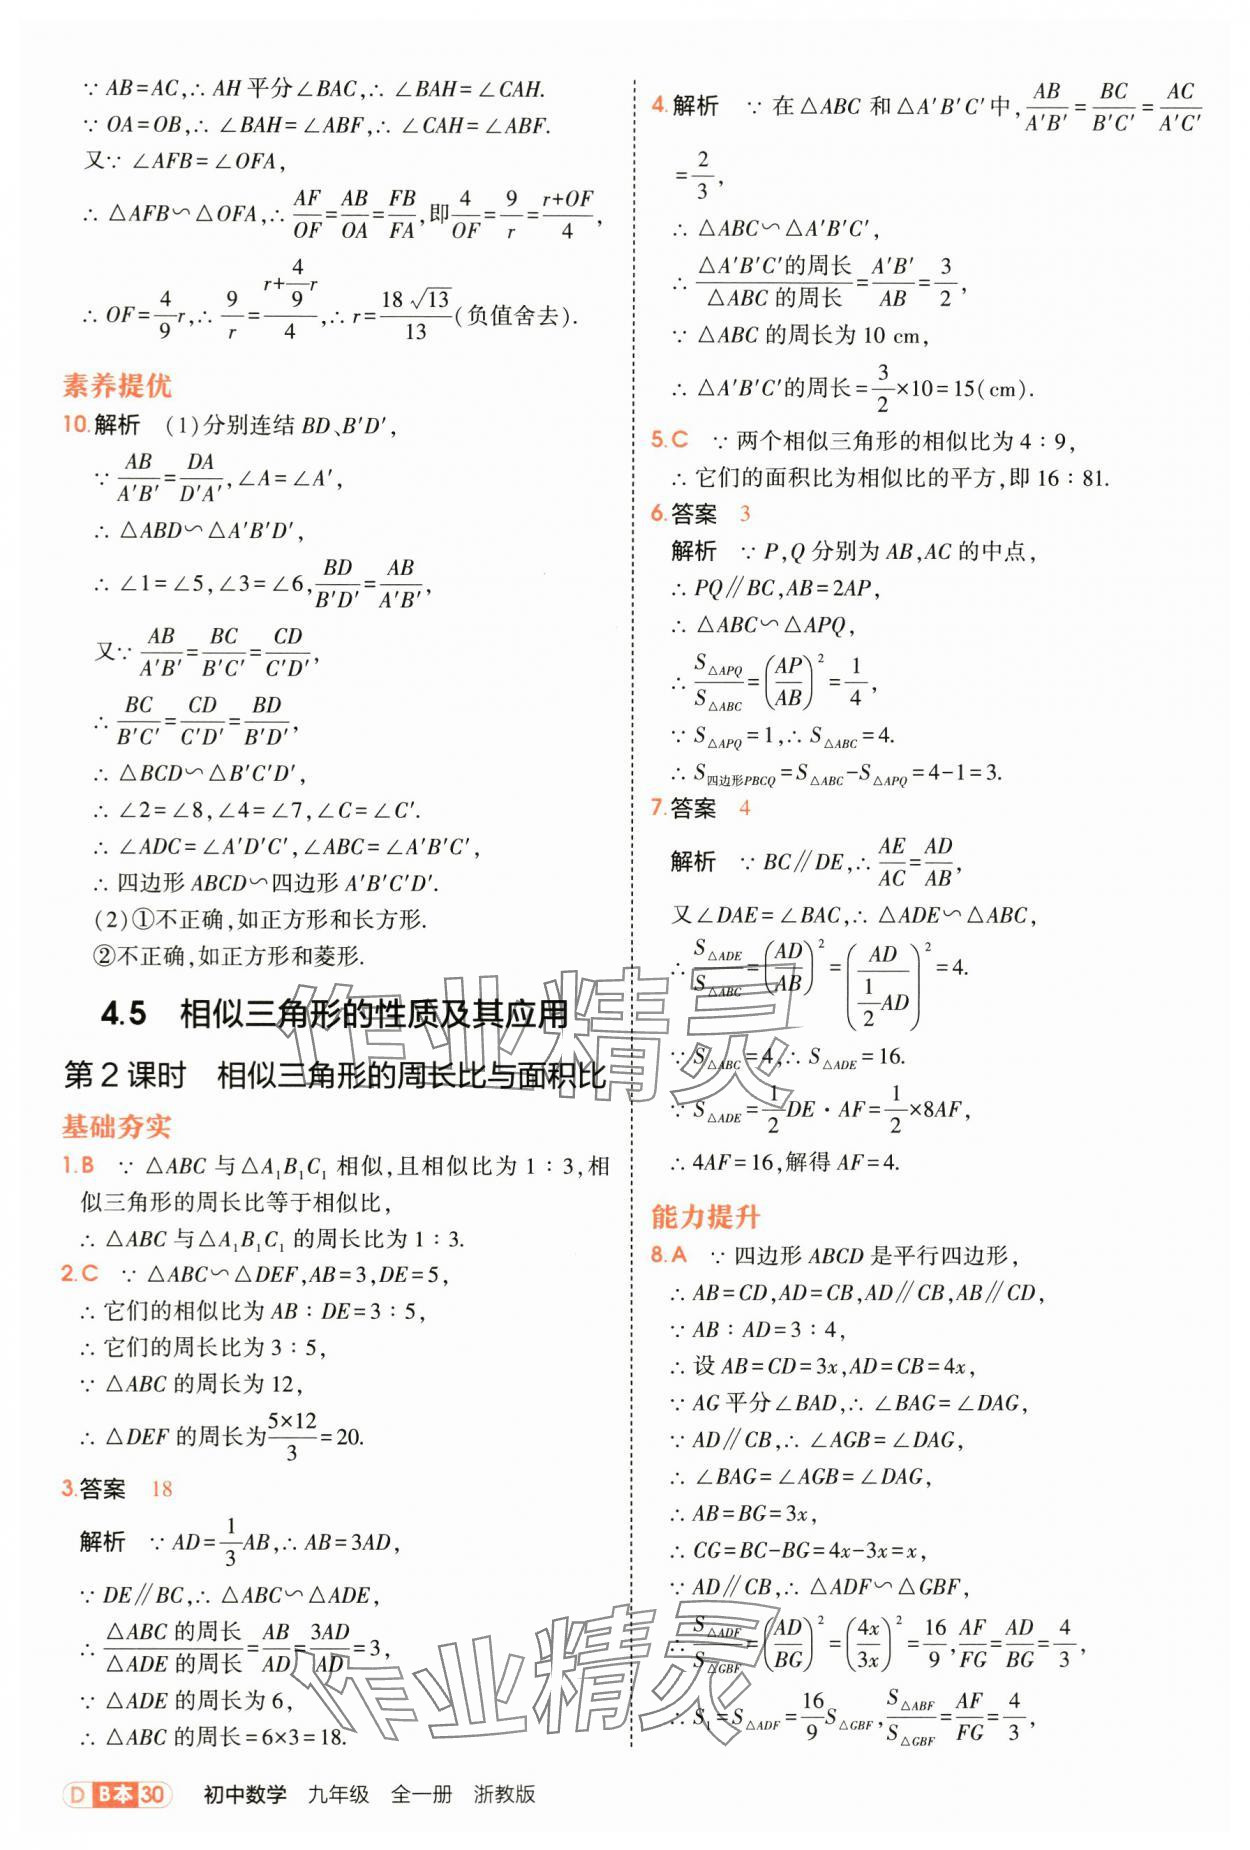 ∵ AB=AC,∴ AH 平分∠BAC,∴ ∠BAH=∠CAH.
∵ OA=OB,∴ ∠BAH=∠ABF,∴ ∠CAH=∠ABF.
又∵ ∠AFB=∠OFA,
∴ △AFB∽△OFA,∴ AF/OF=AB/OA=FB/FA,即 4/OF=9/r=(r+OF)/4,
∴ OF=4/9 r,∴ 9/r=(r+4/9 r)/4,∴ r=18√13/13(负值舍去).
素养提优
10.解析 (1)分别连结 BD、B′D′,
∵ AB/A′B′=DA/D′A′,∠A=∠A′,
∴ △ABD∽△A′B′D′,
∴ ∠1=∠5,∠3=∠6,BD/B′D′=AB/A′B′,
又∵ AB/A′B′=BC/B′C′=CD/C′D′,
∴ BC/B′C′=CD/C′D′=BD/B′D′,
∴ △BCD∽△B′C′D′,
∴ ∠2=∠8,∠4=∠7,∠C=∠C′.
∴ ∠ADC=∠A′D′C′,∠ABC=∠A′B′C′,
∴ 四边形 ABCD∽四边形 A′B′C′D′.
(2)①不正确,如正方形和长方形.
②不正确,如正方形和菱形.
4.5 相似三角形的性质及其应用
第 2 课时 相似三角形的周长比与面积比
基础夯实
1.B ∵ △ABC 与△A₁B₁C₁ 相似,且相似比为 1∶3,相
似三角形的周长比等于相似比,
∴ △ABC 与△A₁B₁C₁ 的周长比为 1∶3.
2.C ∵ △ABC∽△DEF,AB=3,DE=5,
∴ 它们的相似比为 AB∶DE=3∶5,
∴ 它们的周长比为 3∶5,
∵ △ABC 的周长为 12,
∴ △DEF 的周长为 5×12/3=20.
3.答案 18
解析 ∵ AD=1/3 AB,∴ AB=3AD,
∵ DE∥BC,∴ △ABC∽△ADE,
∴ △ABC 的周长/△ADE 的周长=AB/AD=3AD/AD=3,
∵ △ADE 的周长为 6,
∴ △ABC 的周长=6×3=18.
4.解析 ∵ 在△ABC 和△A′B′C′中,AB/A′B′=BC/B′C′=AC/A′C′
=2/3,
∴ △ABC∽△A′B′C′,
∴ △A′B′C′的周长/△ABC 的周长=A′B′/AB=3/2,
∵ △ABC 的周长为 10 cm,
∴ △A′B′C′的周长=3/2×10=15(cm).
5.C ∵ 两个相似三角形的相似比为 4∶9,
∴ 它们的面积比为相似比的平方,即 16∶81.
6.答案 3
解析 ∵ P,Q 分别为 AB,AC 的中点,
∴ PQ∥BC,AB=2AP,
∴ △ABC∽△APQ,
∴ S△APQ/S△ABC=(AP/AB)²=1/4,
∵ S△APQ=1,∴ S△ABC=4.
∴ S四边形PBCQ=S△ABC-S△APQ=4-1=3.
7.答案 4
解析 ∵ BC∥DE,∴ AE/AC=AD/AB,
又∠DAE=∠BAC,∴ △ADE∽△ABC,
∴ S△ADE/S△ABC=(AD/AB)²=(AD/(1/2 AD))²=4.
∵ S△ABC=4,∴ S△ADE=16.
∵ S△ADE=1/2 DE·AF=1/2×8AF,
∴ 4AF=16,解得 AF=4.
能力提升
8.A ∵ 四边形 ABCD 是平行四边形,
∴ AB=CD,AD=CB,AD∥CB,AB∥CD,
∵ AB∶AD=3∶4,
∴ 设 AB=CD=3x,AD=CB=4x,
∵ AG 平分∠BAD,∴ ∠BAG=∠DAG,
∵ AD∥CB,∴ ∠AGB=∠DAG,
∴ ∠BAG=∠AGB=∠DAG,
∴ AB=BG=3x,
∴ CG=BC-BG=4x-3x=x,
∵ AD∥CB,∴ △ADF∽△GBF,
∴ S△ADF/S△GBF=(AD/BG)²=(4x/3x)²=16/9,AF/FG=AD/BG=4/3,
∴ S₁=S△ADF=16/9 S△GBF,S△ABF/S△GBF=AF/FG=4/3,
D B本 30 初中数学 九年级 全一册 浙教版
作业精灵
作业精灵